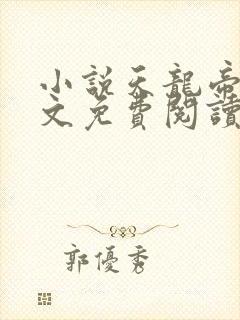 小説天龍帝
文免費閱讀
郭優秀